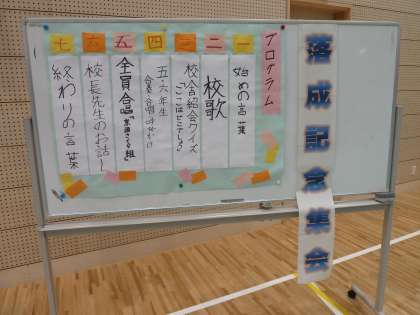 落成記念集会
プログラム
一 始めの言葉
二 校歌
三 校舎紹介クイズ
「ここはどこでしょう」
四 五・六年生
五 全員合唱
六 校長先生のお話
七 終わりの言葉